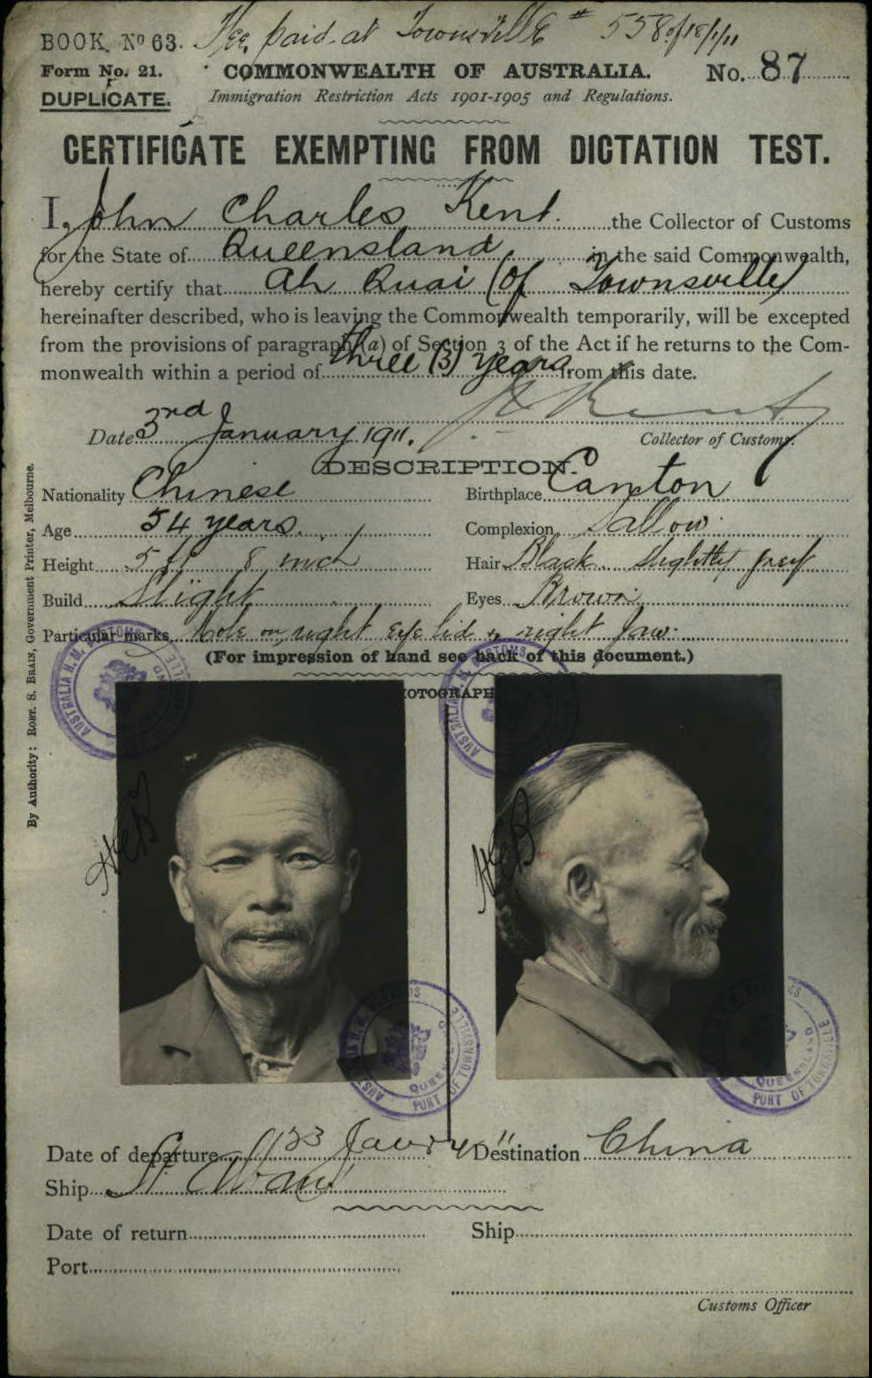 BOOK No 63. Fee paid at Townsville # 558 of 18/1/11
Form No. 21. COMMONWEALTH OF AUSTRALIA. No. 87
DUPLICATE. Immigration Restriction Acts 1901-1905 and Regulations.
CERTIFICATE EXEMPTING FROM DICTATION TEST.
I, John Charles Kent. the Collector of Customs
for the State of Queensland in the said Commonwealth,
hereby certify that Ah Quai (of Townsville)
hereinafter described, who is leaving the Commonwealth temporarily, will be excepted
from the provisions of paragraph (a) of Section 3 of the Act if he returns to the Com-
monwealth within a period of three (3) years from this date.
Date 3rd January 1911. Collector of Customs.
DESCRIPTION.
Nationality Chinese Birthplace Canton
Age 54 years. Complexion Sallow.
Height 5 ft 8 inch Hair Black slightly grey
Build Slight Eyes Brown
Particular marks, Mole on right eye lid & right jaw.
(For impression of hand see back of this document.)
PHOTOGRAPH
By Authority: ROBT. S. BRAIN, Government Printer, Melbourne.
H. M. CUSTOMS AUSTRALIA
H. M. CUSTOMS AUSTRALIA
HCB
HCB
CUSTOMS AUSTRALIA QUEENSLAND PORT OF TOWNSVILLE
QUEENSLAND PORT OF TOWNSVILLE
Date of departure 23 Destination China
Ship St Albans
Date of return Ship
Port
Customs Officer